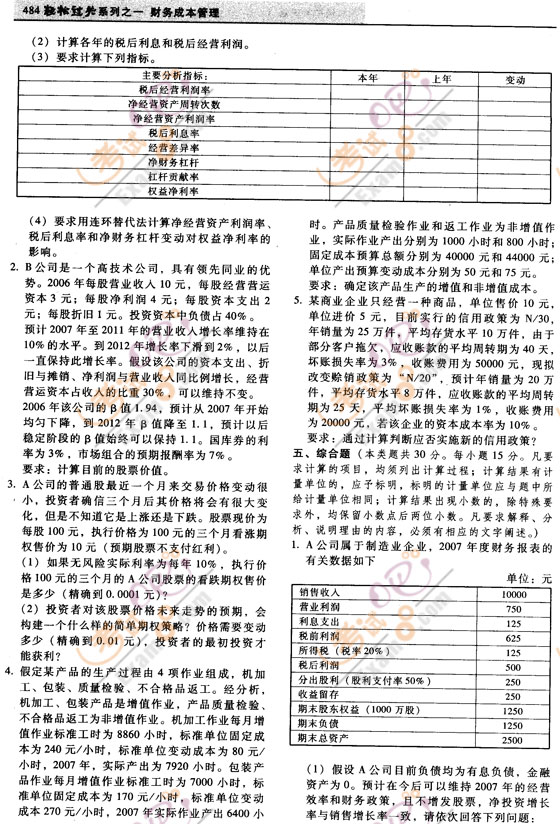 484 轻松过关系列之一 财务成本管理
（2）计算各年的税后利息和税后经营利润。
（3）要求计算下列指标。
主要分析指标： 本年 上年 变动
税后经营利润率
净经营资产周转次数
净经营资产利润率
税后利息率
经营差异率
净财务杠杆
杠杆贡献率
权益净利率
（4）要求用连环替代法计算净经营资产利润率、
税后利息率和净财务杠杆变动对权益净利率的
影响。
2. B公司是一个高技术公司，具有领先同业的优
势。2006年每股营业收入10元，每股经营营运
资本3元；每股净利润4元；每股资本支出2
元；每股折旧1元。投资资本中负债占40%。
预计2007年至2011年的营业收入增长率维持在
10%的水平。到2012年增长率下滑到2%，以后
一直保持此增长率。假设该公司的资本支出、折
旧与摊销、净利润与营业收入同比例增长，经营
营运资本占收入的比重30%，可以维持不变。
2006年该公司的β值1.94，预计从2007年开始
均匀下降，到2012年β值降至1.1，预计以后
稳定阶段的β值始终可以保持1.1。国库券的利
率为3%，市场组合的预期报酬率为7%。
要求：计算目前的股票价值。
3. A公司的普通股最近一个月来交易价格变动很
小，投资者确信三个月后其价格将会有很大变
化，但是不知道它是上涨还是下跌。股票现价为
每股100元，执行价格为100元的三个月看涨期
权售价为10元（预期股票不支付红利）。
（1）如果无风险实际利率为每年10%，执行价
格100元的三个月的A公司股票的看跌期权售价
是多少（精确到0.0001元）？
（2）投资者对该股票价格未来走势的预期，会
构建一个什么样的简单期权策略？价格需要变动
多少（精确到0.01元），投资者的最初投资才
能获利？
4. 假定某产品的生产过程由4项作业组成，机加
工、包装、质量检验、不合格品返工。经分析，
机加工、包装产品是增值作业，产品质量检验、
不合格品返工为非增值作业。机加工作业每月增
值作业标准工时为8860小时，标准单位固定成
本为240元/小时，标准单位变动成本为80元/
小时，2007年，实际产出为7920小时。包装产
品作业每月增值作业标准工时为7000小时，标
准单位固定成本为170元/小时，标准单位变动
成本270元/小时，2007年实际作业产出6400小
时。产品质量检验作业和返工作业为非增值作
业，实际作业产出分别为1000小时和800小时；
固定成本预算总额分别为40000元和44000元；
单位产出预算变动成本分别为50元和75元。
要求：确定该产品生产的增值和非增值成本。
5. 某商业企业只经营一种商品，单位售价10元，
单位进价5元，目前实行的信用政策为N/30，
年销量为25万件，平均存货水平10万件，由于
部分客户拖欠，应收账款的平均周转期为40天，
坏账损失率为3%，收账费用为50000元，现拟
改变赊销政策为“N/20”，预计年销量为20万
件，平均存货水平8万件，应收账款的平均周转
期为25天，平均坏账损失率为1%，收账费用
为20000元，若该企业的资本成本率为10%。
要求：通过计算判断应否实施新的信用政策？
五、综合题（本类题共30分。每小题15分。凡要
求计算的项目，均须列出计算过程；计算结果有计
量单位的，应予标明，标明的计量单位应与题中所
给计量单位相同；计算结果出现小数的，除特殊要
求外，均保留小数点后两位小数。凡要求解释、分
析、说明理由的内容，必须有相应的文字阐述。）
1. A公司属于制造业企业，2007年度财务报表的
有关数据如下
单位：元
销售收入 10000
营业利润 750
利息支出 125
税前利润 625
所得税（税率20%） 125
税后利润 500
分出股利（股利支付率50%） 250
收益留存 250
期末股东权益（1000万股） 1250
期末负债 1250
期末总资产 2500
（1）假设A公司目前负债均为有息负债，金融
资产为0。预计在今后可以维持2007年的经营
效率和财务政策，且不增发股票，净投资增长
率与销售增长率一致，请依次回答下列问题：